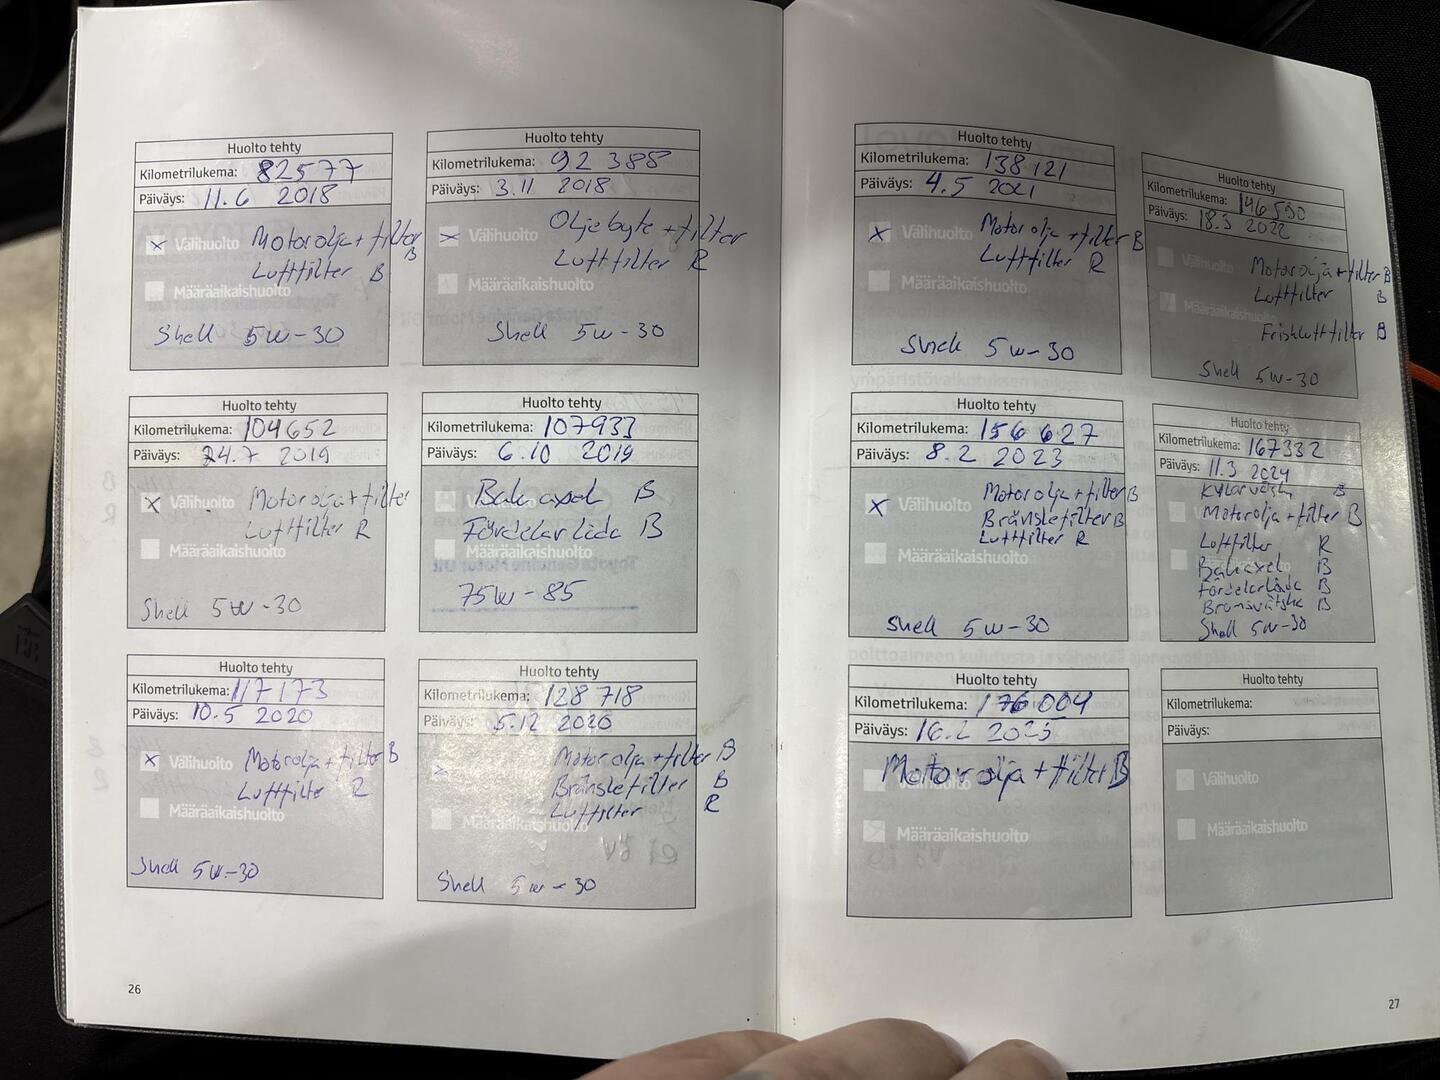 Huolto tehty
Kilometrilukema: 82577
Päiväys: 11.6 2018
Välihuolto Motorolja + filter B
Luftfilter B
Määräaikaishuolto
Shell 5w-30
Huolto tehty
Kilometrilukema: 92 388
Päiväys: 3.11 2018
Oljebyte + filter
Välihuolto
Luftfilter R
Määräaikaishuolto
Shell 5w-30
Huolto tehty
Kilometrilukema: 104652
Päiväys: 24.7 2019
Välihuolto Motorolja + filter
Luftfilter R
Määräaikaishuolto
Shell 5w-30
Huolto tehty
Kilometrilukema: 107933
Päiväys: 6.10 2019
Bakaxel B
Välihuolto
Fördelarlåda B
Määräaikaishuolto
75w-85
Huolto tehty
Kilometrilukema: 117173
Päiväys: 10.5 2020
Välihuolto Motorolja + filter B
Luftfilter R
Määräaikaishuolto
Shell 5w-30
Huolto tehty
Kilometrilukema: 128 718
Päiväys: 5.12 2020
Välihuolto Motorolja + filter B
Bränslefilter B
Luftfilter R
Määräaikaishuolto
Shell 5w-30
26
Huolto tehty
Kilometrilukema: 138121
Päiväys: 4.5 2021
Välihuolto Motorolja + filter B
Luftfilter R
Määräaikaishuolto
Shell 5w-30
Huolto tehty
Kilometrilukema: 146590
Päiväys: 18.3 2022
Välihuolto Motorolja + filter B
Luftfilter B
Määräaikaishuolto
Friskluftfilter B
Shell 5w-30
Huolto tehty
Kilometrilukema: 156 627
Päiväys: 8.2 2023
Motorolja + filter B
Välihuolto Bränslefilter B
Luftfilter R
Määräaikaishuolto
Shell 5w-30
Huolto tehty
Kilometrilukema: 167332
Päiväys: 11.3 2024
Kylarvätska B
Motorolja + filter B
Luftfilter R
Bakaxel B
Fördelarlåda B
Bromsvätska B
Shell 5w-30
Huolto tehty
Kilometrilukema: 176 004
Päiväys: 16.2 2025
Motorolja + filter B
Määräaikaishuolto
Huolto tehty
Kilometrilukema:
Päiväys:
Välihuolto
Määräaikaishuolto
27